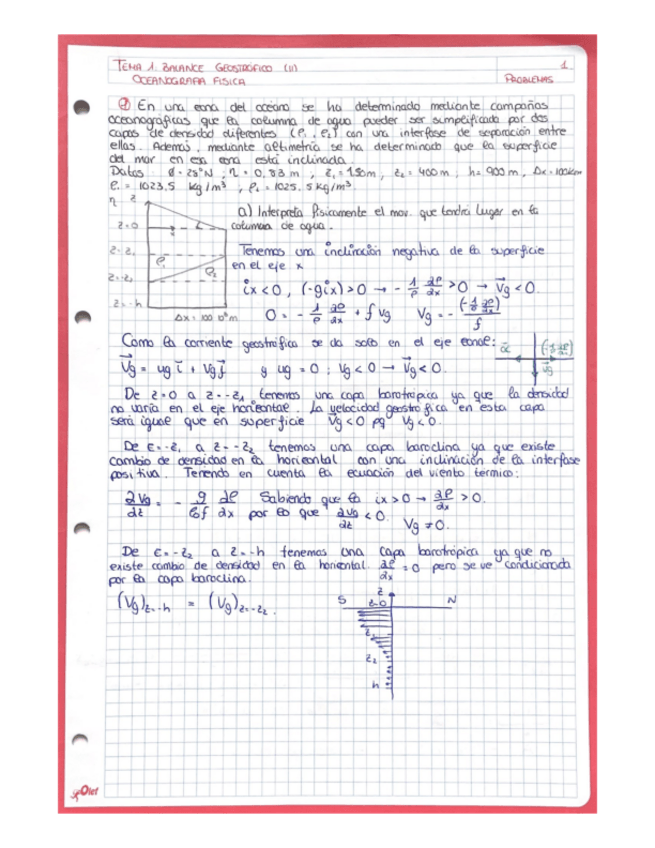 TEMA 1. BALANCE GEOSTRÓFICO (II)
OCEANOGRAFÍA FÍSICA
1
PROBLEMAS
① En una zona del océano se ha determinado mediante campañas
oceanográficas que la columna de agua pueder ser simplificada por dos
capas de densidad diferentes (ρ₁, ρ₂) con una interfase de separación entre
ellas. Además, mediante altimetría se ha determinado que la superficie
del mar en esa zona está inclinada.
Datos: θ = 28°N; η = 0,83 m, z₁ = 150m, z₂ = 400m; h = 900m, Δx = 100km
ρ₁ = 1023.5 kg/m³, ρ₂ = 1025.5 kg/m³
η z
z=0
z=-z₁
z=-z₂
z=-h
ρ₁
ρ₂
a) Interpreta físicamente el mov. que tendrá lugar en la
columna de agua.
Tenemos una inclinación negativa de la superficie
en el eje x
ix<0, (-gix)>0 → -1/ρ ∂ρ/∂x >0 → V⃗g<0.
0 = -1/ρ ∂ρ/∂x + f vg
Como la corriente geostrófica se da solo en el eje zonal:
V⃗g = ug i⃗ + vg j⃗ y ug = 0; Vg<0 → V⃗g<0.
De z=0 a z=-z₁ tenemos una capa barotrópica ya que la densidad
no varía en el eje horizontal. La velocidad geostrófica en esta capa
será igual que en superficie Vg<0 pq Vg<0.
De z=-z₁ a z=-z₂ tenemos una capa baroclina ya que existe
cambio de densidad en la horizontal con una inclinación de la interfase
positiva. Teniendo en cuenta la ecuación del viento térmico:
∂Vg/∂z = - g/ρ₀f ∂ρ/∂x Sabiendo que la ix>0 → ∂ρ/∂x >0.
por lo que ∂Vg/∂z <0. Vg≠0.
De z=-z₂ a z=-h tenemos una capa barotrópica ya que no
existe cambio de densidad en la horizontal ∂ρ/∂x =0 pero se ve condicionada
por la capa baroclina.
(Vg)z=-h = (Vg)z=-z₂.
S
z
z=0
N
z₁
z₂
h